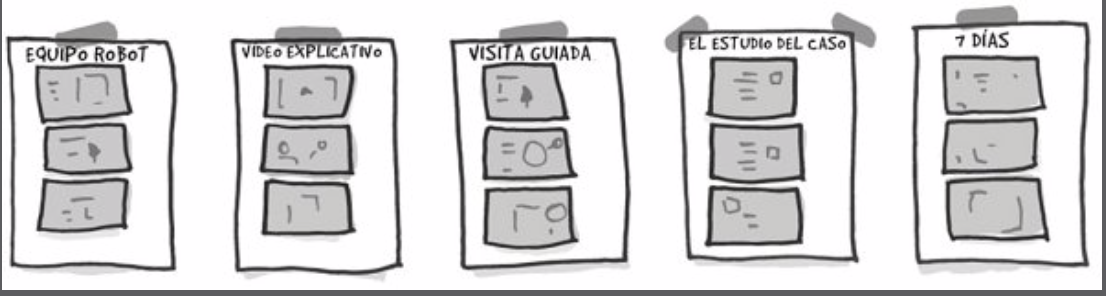 EQUIPO ROBOT
VIDEO EXPLICATIVO
VISITA GUIADA
EL ESTUDIO DEL CASO
7 DÍAS